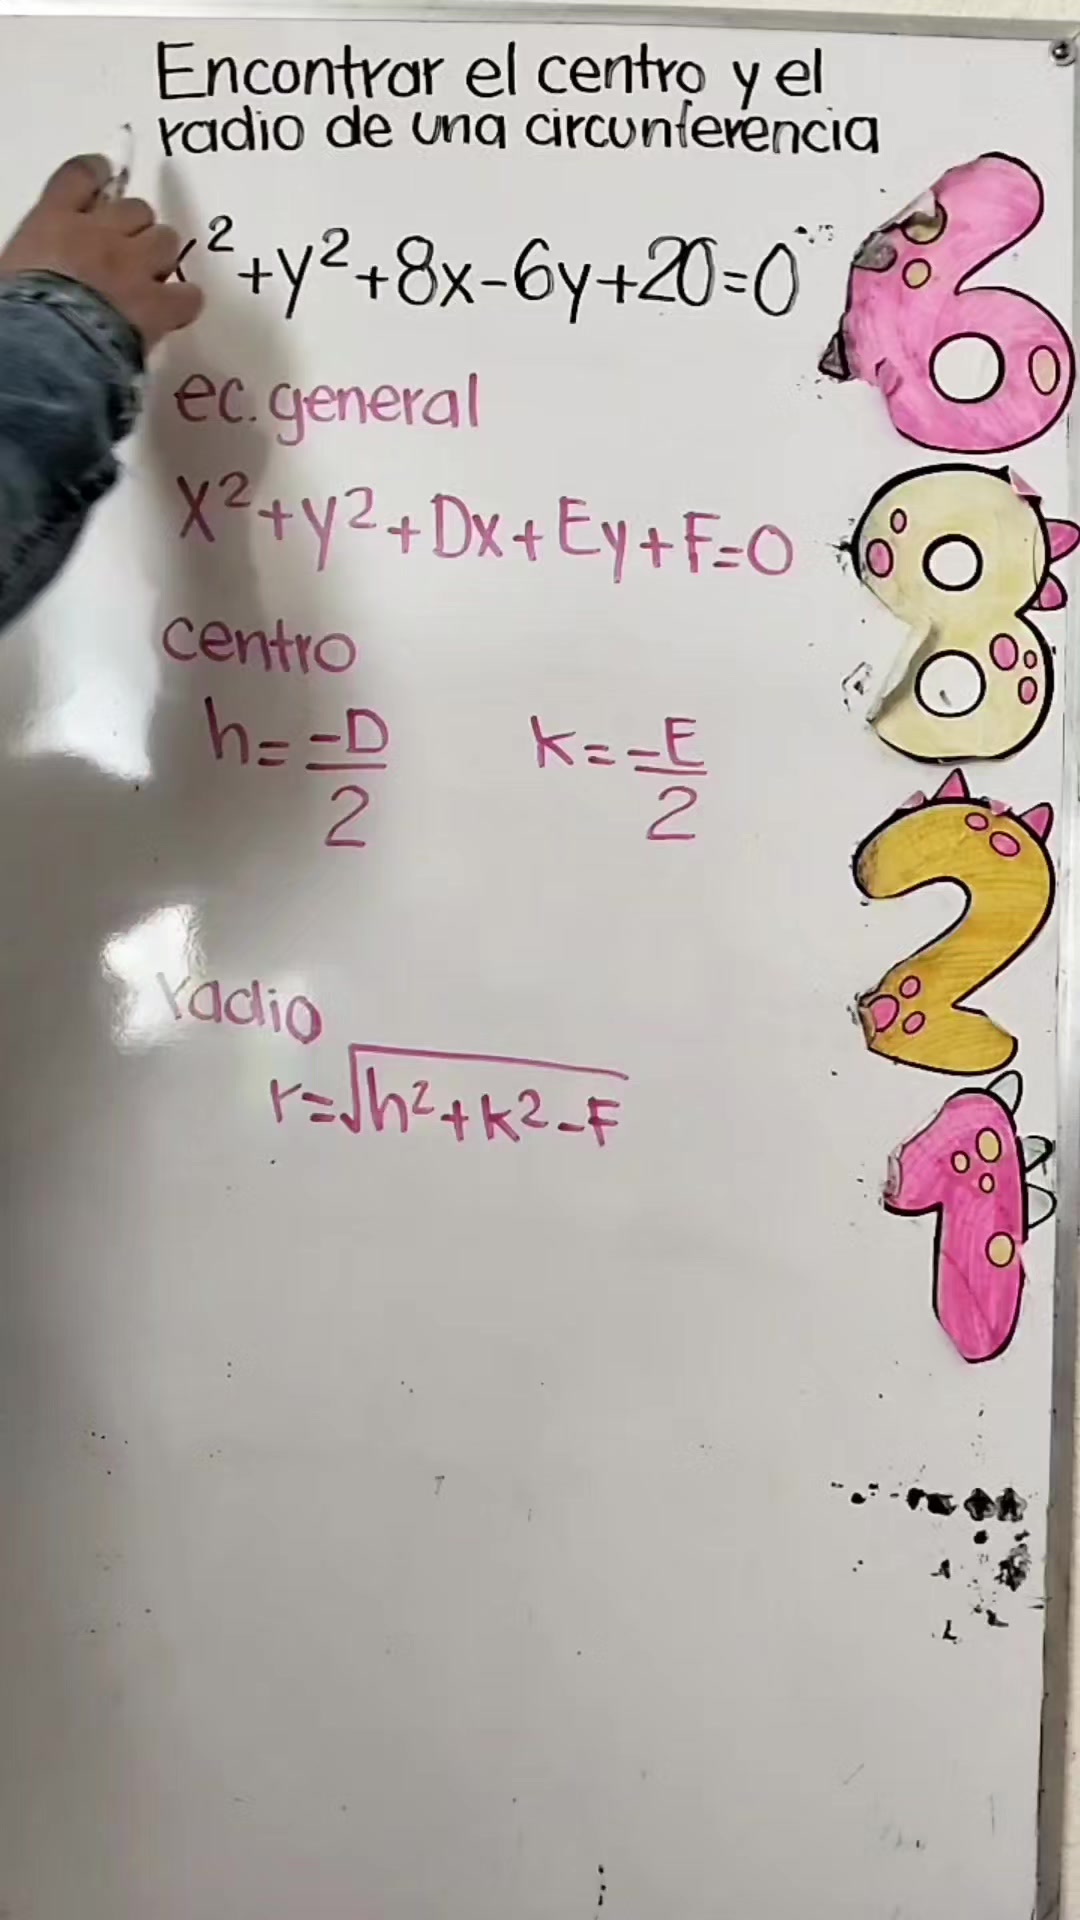 Encontrar el centro y el
radio de una circunferencia
x²+y²+8x-6y+20=0
ec. general
x²+y²+Dx+Ey+F=0
centro
h=-D/2 k=-E/2
radio
r=√h²+k²-F
6
8
2
1